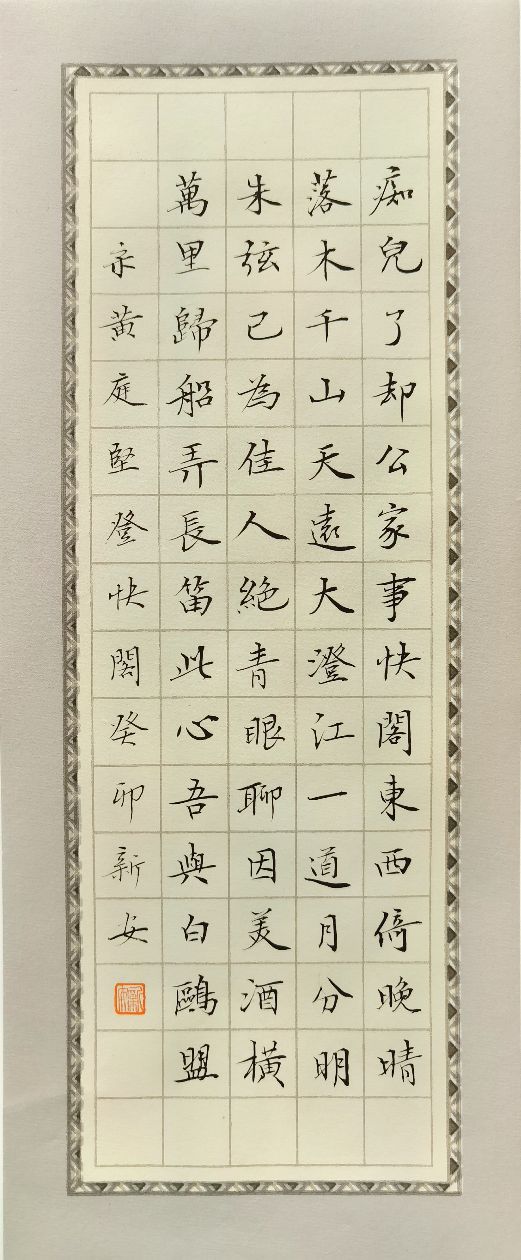 痴兒了却公家事快閣東西倚晚晴
落木千山天遠大澄江一道月分明
朱弦已為佳人絕青眼聊因美酒橫
萬里歸船弄長笛此心吾與白鷗盟
宋黃庭堅登快閣癸卯新女